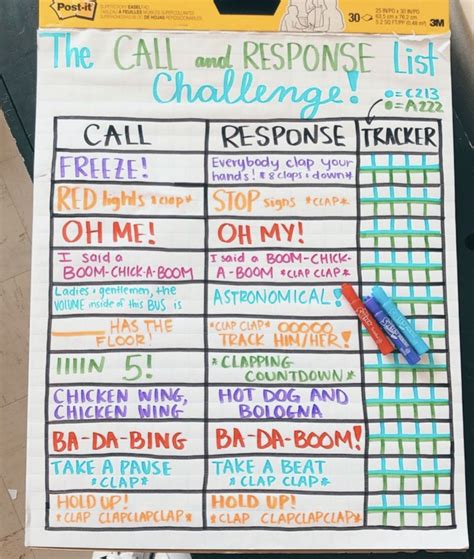 Post-it
30
25 IN x 30 IN
63.5 cm x 76.2 cm
3M
The CALL and RESPONSE List
Challenge!
= C213
= A222
CALL RESPONSE TRACKER
FREEZE!
Everybody clap your
hands! *8 claps & down*
RED lights *CLAP*
STOP signs *CLAP*
OH ME!
OH MY!
I said a
BOOM-CHICK-A-BOOM
I said a BOOM-CHICK-
A-BOOM *CLAP CLAP*
Ladies & gentlemen, the
VOLUME inside of this BUS is
ASTRONOMICAL!
____ HAS THE
FLOOR!
*CLAP CLAP* OOOOO
TRACK HIM/HER!
IIIIN 5!
*CLAPPING
COUNTDOWN*
CHICKEN WING,
CHICKEN WING
HOT DOG AND
BOLOGNA
BA-DA-BING
BA-DA-BOOM!
TAKE A PAUSE
*CLAP*
TAKE A BEAT
*CLAP*
HOLD UP!
*CLAP CLAPCLAPCLAP*
HOLD UP!
*CLAP CLAPCLAPCLAP*